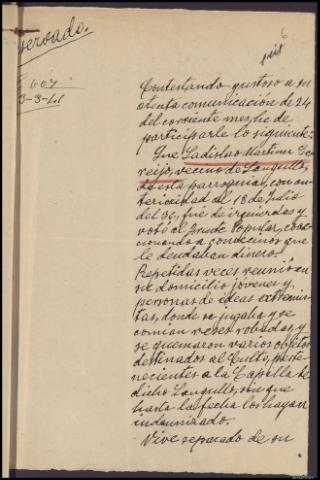 servado.
6
seis
607
3-3-41
Contestando gustoso a su
atenta comunicacion de 24
del corriente mes, he de
participarle lo siguiente:
Que Ladislao Martinez
vecino de Languillo,
de esta parroquia, con an
terioridad al 18 de Julio
del 36, fue de izquierdas y
votó al Frente Popular, coac
cionando a convecinos que
le deudaban dinero.
Repetidas veces reunió en
su domicilio jovenes y
personas de ideas extremis
tas, donde se jugaba y se
comian reses robadas, y
se quemaron varios objetos
destinados al Culto, perte
necientes a la Capilla de
dicho Languillo, sin que
hasta la fecha los hayan
indemnizado.
Vive separado de su